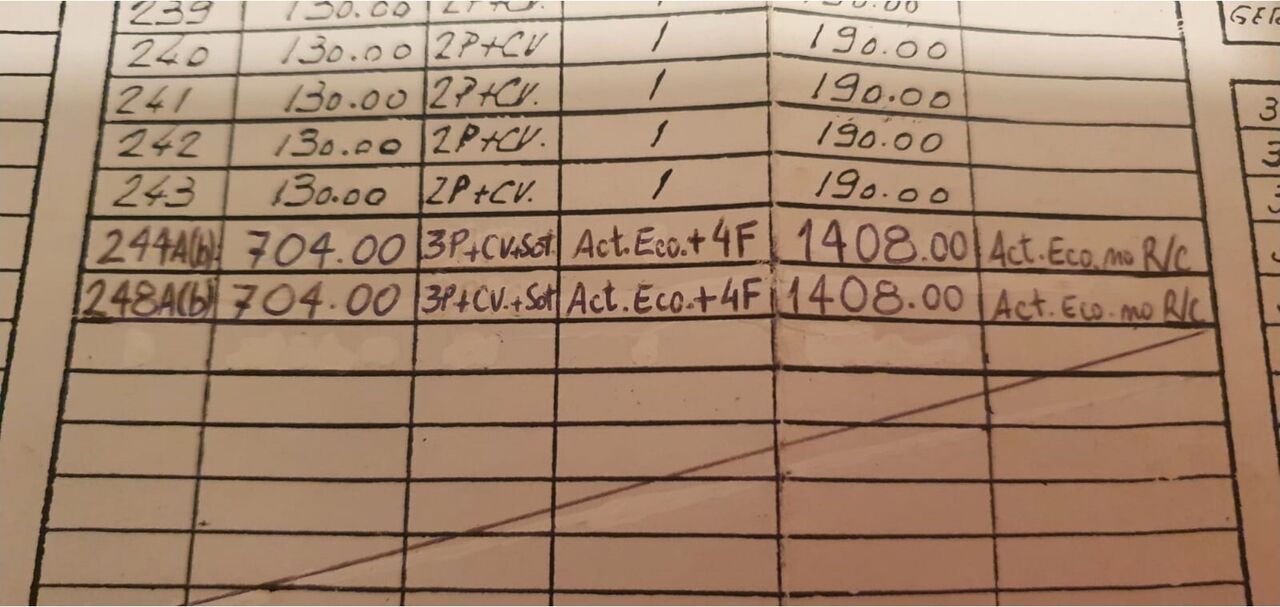 239 130.00 2P+CV 1 190.00
240 130.00 2P+CV 1 190.00
241 130.00 2P+CV. 1 190.00
242 130.00 2P+CV. 1 190.00
243 130.00 2P+CV. 1 190.00
244A(b). 704.00 3P+CV+Sot Act.Eco.+4F 1408.00 Act.Eco.no R/C
248A(b) 704.00 3P+CV.+Sot Act.Eco.+4F 1408.00 Act.Eco.no R/C